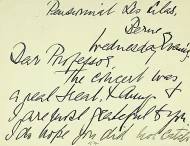 Pensionnat Les Lilas,
Berne
Wednesday Evening
Dear Professor,
The concert was
a real treat, & Amy & I
are most grateful to you.
I do hope you did not catch